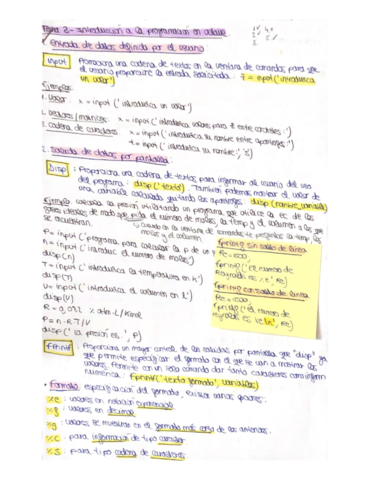 Tema 2 - Introducción a la programación en octave
1. Entrada de datos definida por el usuario
input : Proporciona una cadena de textos en la ventana de comandos para que
el usuario proporcione la entrada solicitada: z = input('introduzca
un valor')
Ejemplos:
1. Valor: x = input('introduzca un valor')
2. vectores/matrices: x = input('introduzca valores para z entre corchetes:')
3. cadena de caracteres: x = input('introduzca su nombre entre apóstrofes:')
x = input('introduzca su nombre:', 's')
2. Salida de datos por pantalla:
Disp : Proporciona una cadena de textos para informar al usuario del uso
del programa: disp('texto'). También podemos mostrar el valor de
una variable calculada quitando los apóstrofes: disp(nombre_variable)
Ejemplo: calcula la presión utilizando un programa que utilice la ec de los
gases ideales, de modo que pida el número de moles, la temp y el volumen
y el volumen
P = input('programa para calcular la p de un
n = input('introduce el número de moles')
disp(n)
T = input('introduzca la temperatura en K')
disp(T)
V = input('introduzca el volumen en L')
disp(V)
R = 0,082 % atm·L/K·mol
P = n·R·T/V
disp('la presión es:', P)
fprintf sin salto de línea
Re = 1500
fprintf('el número de
Reynolds es %e', Re)
fprintf con salto de línea
Re = 1500
fprintf('el número de
reynolds es %e\n', Re)
fprintf : Proporciona un mayor control de las salidas por pantalla que 'disp' ya
que permite especificar el formato con el que se van a mostrar los
valores. Permite con un solo comando dar tanto caracteres como inform
numérica: fprintf('texto formato', variables)
• Formato: especificación del formato, existen varias opciones:
%e : valores en notación exponencial
%f : valores en decimal
%g : valores se muestran en el formato más corto de los anteriores.
%c : para información de tipo carácter
%s : para tipo cadena de caracteres